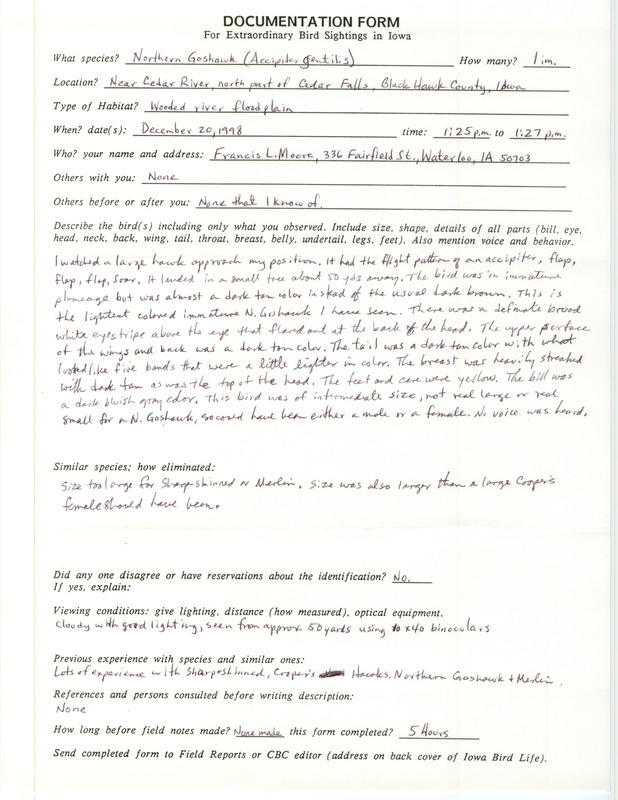 DOCUMENTATION FORM
For Extraordinary Bird Sightings in Iowa
What species? Northern Goshawk (Accipiter gentilis) How many? 1 im.
Location? Near Cedar River, north part of Cedar Falls, Black Hawk County, Iowa
Type of Habitat? Wooded river floodplain
When? date(s): December 20, 1998 time: 1:25 p.m. to 1:27 p.m.
Who? your name and address: Francis L. Moore, 336 Fairfield St., Waterloo, IA 50703
Others with you: None
Others before or after you: None that I know of.
Describe the bird(s) including only what you observed. Include size, shape, details of all parts (bill, eye,
head, neck, back, wing, tail, throat, breast, belly, undertail, legs, feet). Also mention voice and behavior.
I watched a large hawk approach my position. It had the flight pattern of an accipiter, flap,
flap, flap, soar. It landed in a small tree about 50 yds away. The bird was in immature
plumeage but was almost a dark tan color instead of the usual dark brown. This is
the lightest colored immature N. Goshawk I have seen. There was a definate broad
white eyestripe above the eye that flared out at the back of the head. The upper surface
of the wings and back was a dark tan color. The tail was a dark tan color with what
looked like five bands that were a little lighter in color. The breast was heavily streaked
with dark tan as was the top of the head. The feet and cere were yellow. The bill was
a dark bluish gray color. This bird was of intermediate size, not real large or real
small for a N. Goshawk, so could have been either a male or a female. No voice was heard.
Similar species; how eliminated:
Size too large for Sharp-skinned or Merlin. Size was also larger than a large Cooper's
female should have been.
Did any one disagree or have reservations about the identification? No.
If yes, explain:
Viewing conditions: give lighting, distance (how measured), optical equipment.
Cloudy with good lighting, seen from approx. 50 yards using 10x40 binoculars
Previous experience with species and similar ones:
Lots of experience with Sharp-skinned, Cooper's Hawks, Northern Goshawk + Merlin.
References and persons consulted before writing description:
None
How long before field notes made? None made this form completed? 5 Hours
Send completed form to Field Reports or CBC editor (address on back cover of Iowa Bird Life).